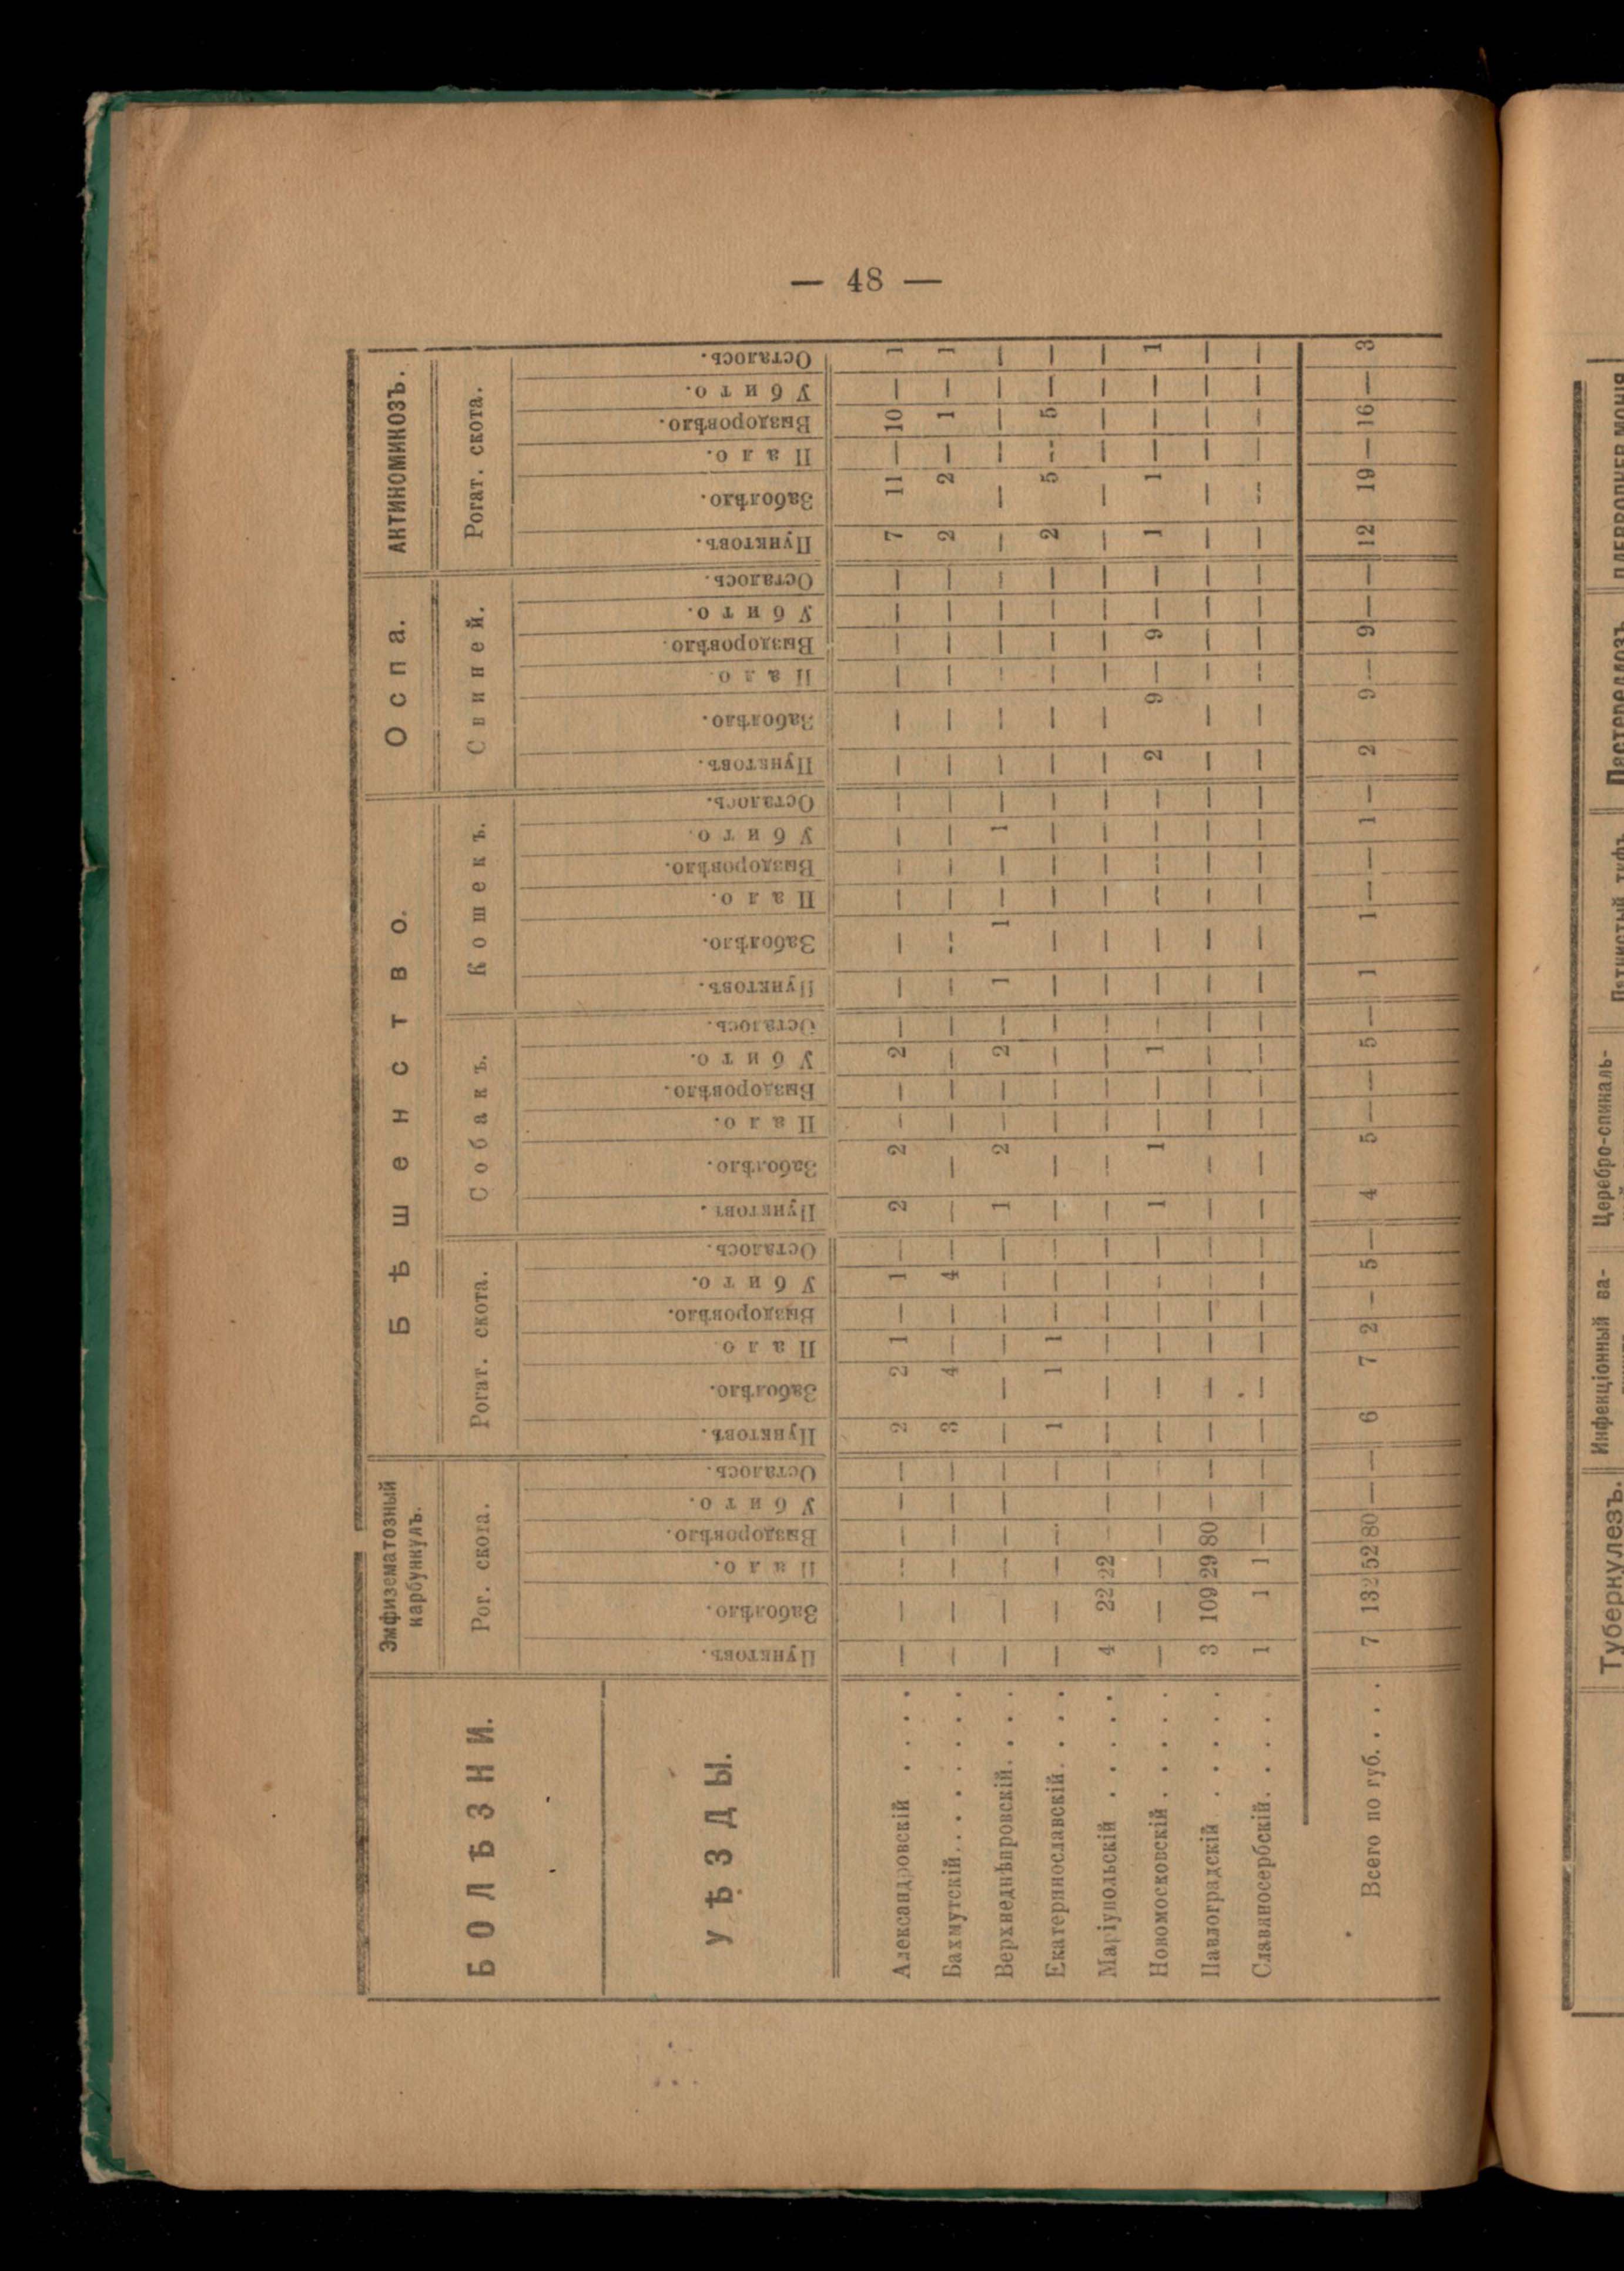 — 48 —
БОЛѢЗНИ.
УѢЗДЫ.
Эмфизематозный карбункулъ.
Бѣшенство.
Оспа.
АКТИНОМИКОЗЪ.
Рог. скота.
Рогат. скота.
Собакъ.
Кошекъ.
Свиней.
Рогат. скота.
Пунктовъ. Заболѣло. Пало. Выздоровѣло. Убито. Осталось. Пунктовъ. Заболѣло. Пало. Выздоровѣло. Убито. Осталось. Пунктовъ. Заболѣло. Пало. Выздоровѣло. Убито. Осталось. Пунктовъ. Заболѣло. Пало. Выздоровѣло. Убито. Осталось. Пунктовъ. Заболѣло. Пало. Выздоровѣло. Убито. Осталось. Пунктовъ. Заболѣло. Пало. Выздоровѣло. Убито. Осталось.
Александровскій . . . . — — — — — — 2 2 1 — 1 — 2 2 — — 2 — — — — — — — — — — — — — 7 11 — 10 — 1
Бахмутскій . . . . . . — — — — — — 3 4 — — 4 — — — — — — — — — — — — — — — — — — — 2 2 — 1 — 1
Верхнеднѣпровскій. . . . — — — — — — — — — — — — 1 2 — — 2 — 1 1 — — 1 — — — — — — — — — — — — —
Екатеринославскій. . . . — — — — — — 1 1 1 — — — — — — — — — — — — — — — — — — — — — 2 5 — 5 — —
Маріупольскій . . . . . 4 22 22 — — — — — — — — — — — — — — — — — — — — — — — — — — — — — — — — —
Новомосковскій . . . . . — — — — — — — — — — — — 1 1 — — 1 — — — — — — — 2 9 — 9 — — 1 1 — — — 1
Павлоградскій . . . . . 3 109 29 80 — — — — — — — — — — — — — — — — — — — — — — — — — — — — — — — —
Славяносербскій. . . . . 1 1 1 — — — — — — — — — — — — — — — — — — — — — — — — — — — — — — — — —
Всего по губ. . . . 7 132 52 80 — — 6 7 2 — 5 — 4 5 — — 5 — 1 1 — — 1 — 2 9 — 9 — — 12 19 — 16 — 3
Туберкулезъ.
Инфекціонный ва-
Церебро-спиналь-